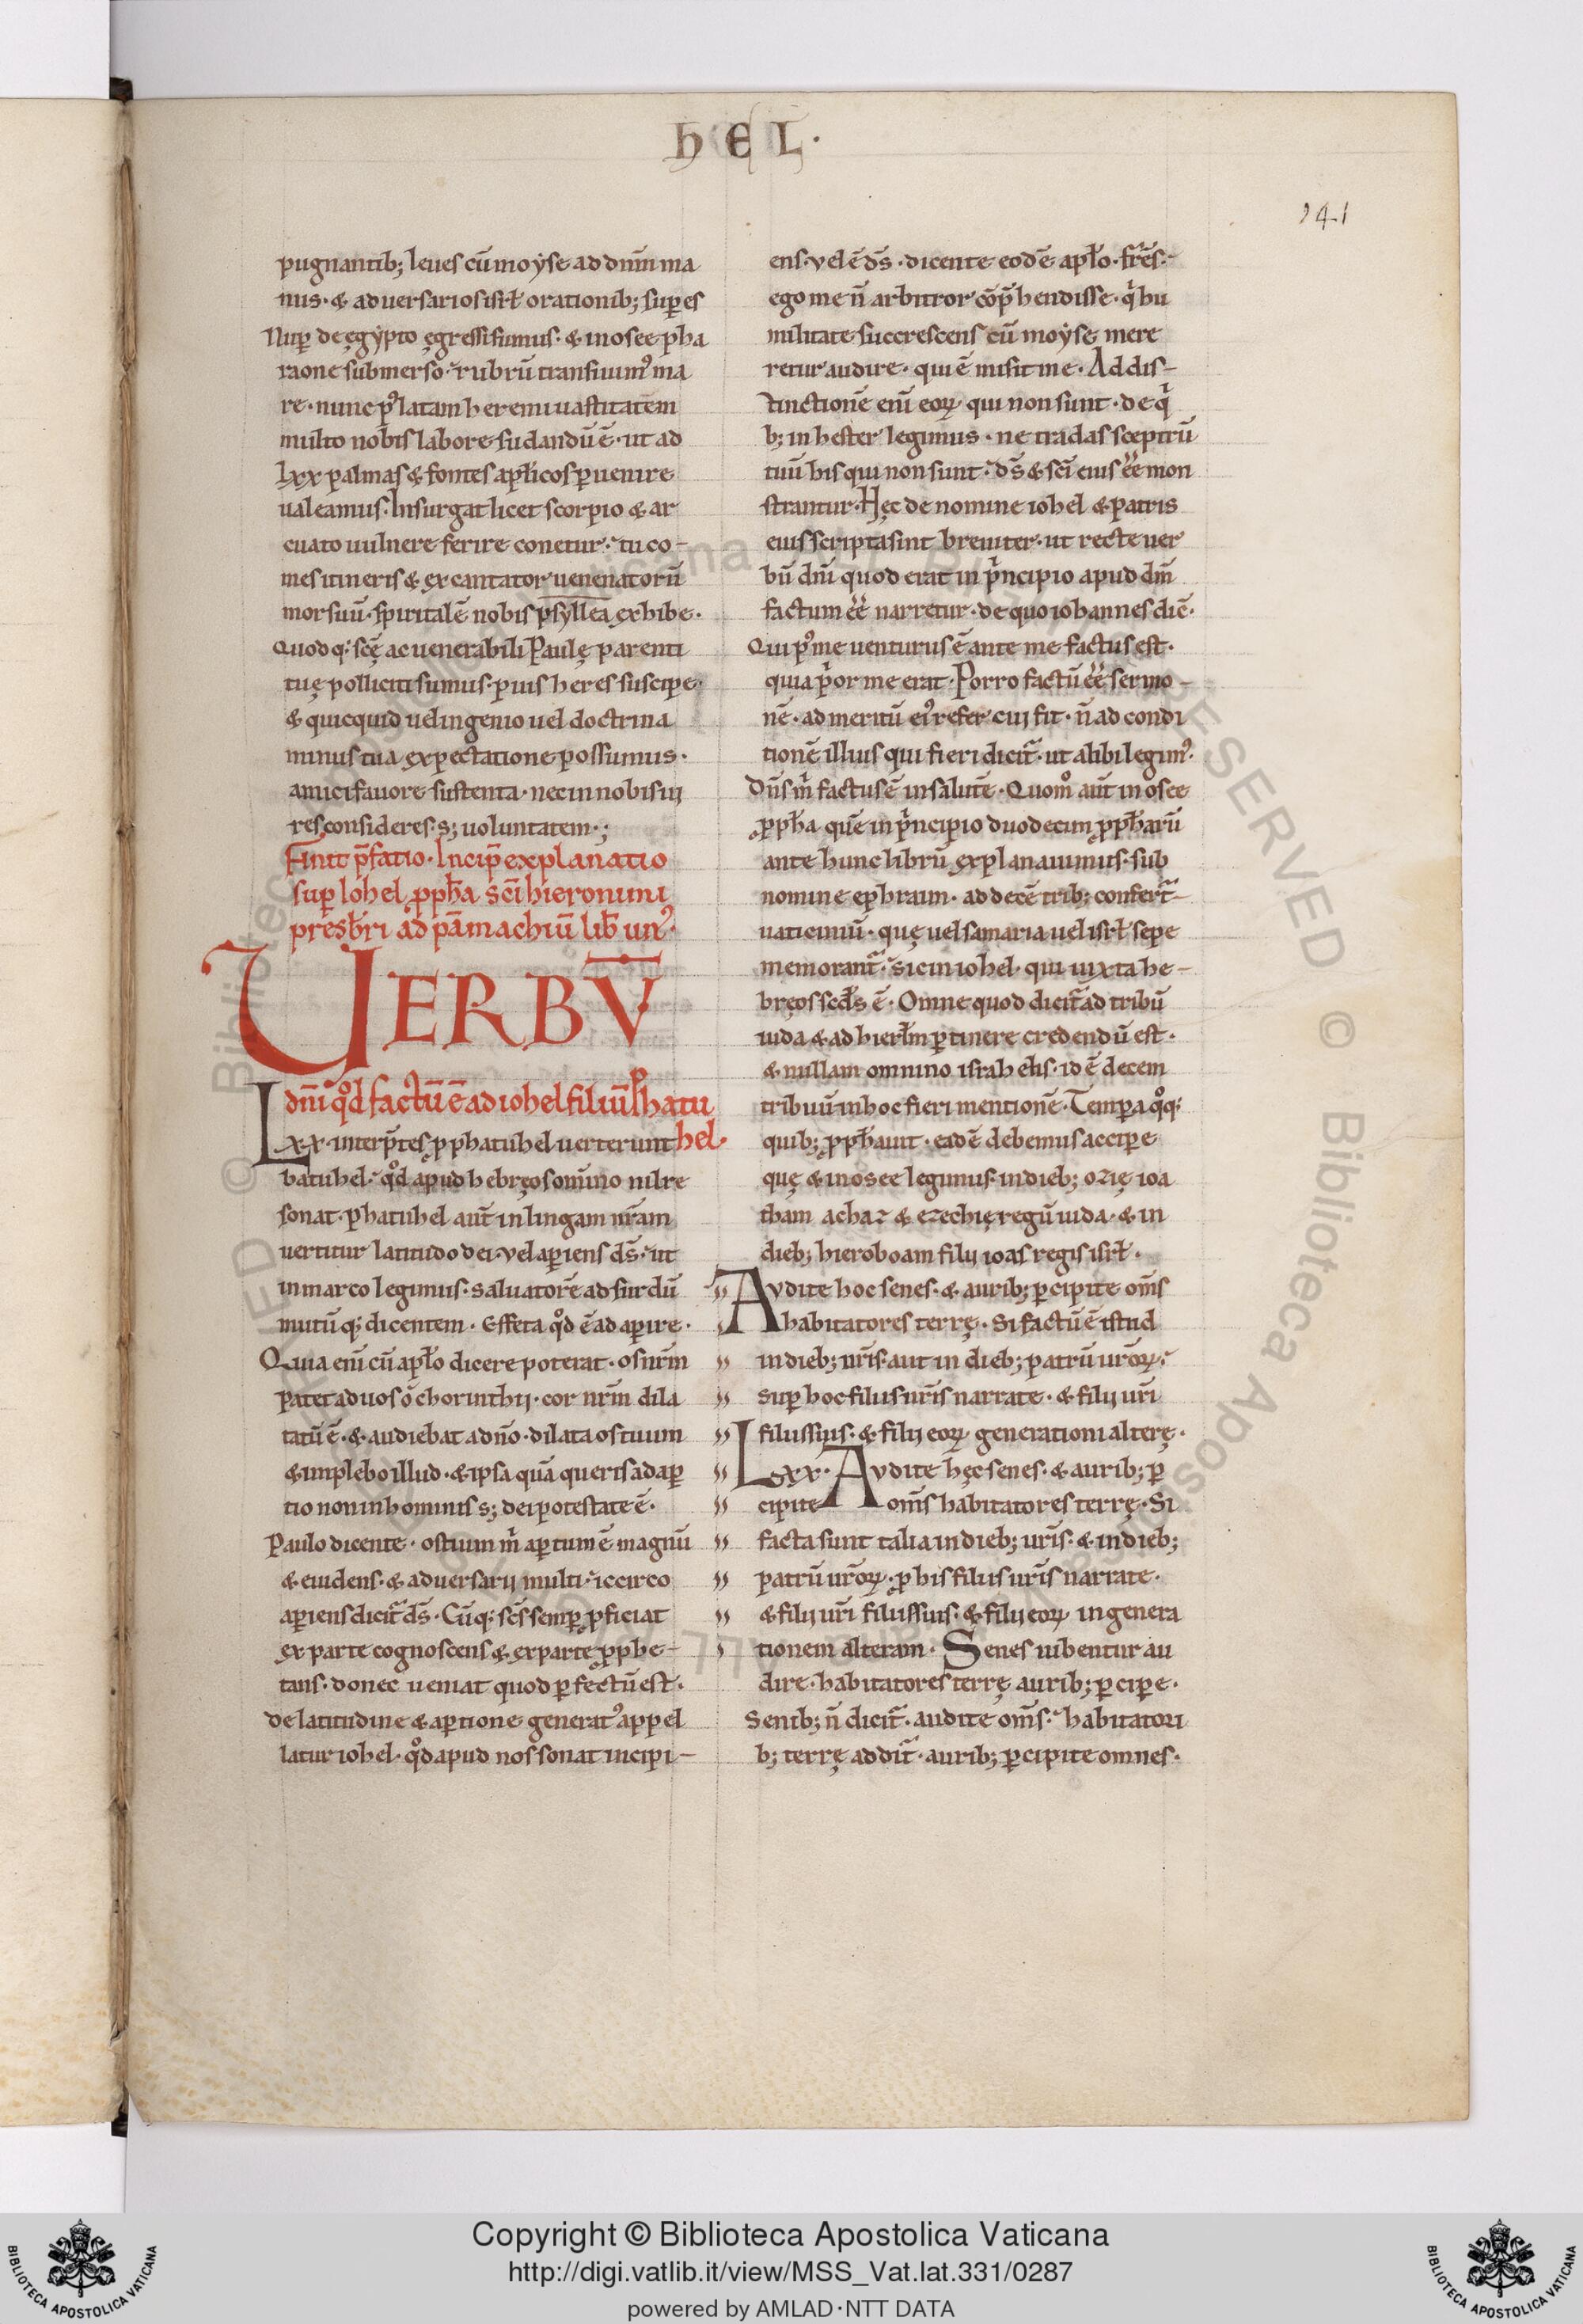 hEL·
141
pugnantib; leues cū moyse ad dn̄m ma
nus· & aduersarios isrl̄ orationib; sup̱es
Nup̱ de ęgypto ęgressi sumus· & in osee pha
raone submerso· rubrū transiuim᾿ ma
re· nunc p᾿ latam heremi uastitatem
multo nobis labore sudandū ē· ut ad
lxx palmas & fontes apl̄icos p̱uenire
ualeamus· Insurgat licet scorpio & ar
cuato uulnere ferire conetur· tu co-
mes itineris & excantator uenenatorū
morsuū· spiritalē nobis psyllea exhibe·
Quod q; scę̄ ac uenerabili Paulę parenti
tuę polliciti sumus· pius heres suscipe·
& quicquid uel ingenio uel doctrina
minus tua expectatione possumus·
amici fauore sustenta· nec in nobis iu
res consideres· s; uoluntatem·;
Finit p̄fatio· Incip̄ explanatio
sup̱ Iohel ꝓph̄a sc̄i hieronimi
presbr̄i ad pāmachiū lib̄ un᾿·
VERBV̄
dn̄i qd̊ factū ē ad iohel filiū phatu
hel·
Lxx· interp̄tes ꝓ phatuhel uerterunt
batuhel· qd̊ apud hebręos om̄ino nil re
sonat· phatuhel aut̄ in lingam nr̄am
uertitur latitudo dei· vel ap̱iens ds̄· ut
in marco legimus· saluatorē ad surdū
mutū q; dicentem· Effeta qd̊ ē adap̱ire·
Quia eni̅ cū apl̄o dicere poterat· os nr̄m
patet ad uos o̅ chorinthii· cor nr̄m dila
tatū ē· & audiebat a dn̄o· dilata os tuum
& implebo illud· & ipsa quā queris adap̱
tio non in hominis s; dei potestate ē·
Paulo dicente· ostium m̊ ap̱tum ē magnū
& euidens· & aduersarij multi· iccirco
ap̱iens dicit̄ ds̄· Cūq; scs̄ semp̱ ꝓficiat
ex parte cognoscens & ex parte ꝓphe-
tans· donec ueniat quod p̱fectū est·
de latitudine & ap̱tione generat᾿ appel
latur iohel· qd̊ apud nos sonat incipi-
ens· vel ē ds̄· dicente eodē apl̄o· fr̄es·
ego me n̄ arbitror cōp̄hendisse· q̊ hu
militate succrescens cū moyse mere
retur audire· qui ē misit me· Ad dis-
tinctionē eni̅ eoꝝ qui non sunt· de q̊
b; in hester legimus· ne tradas sceptrū
tuū his qui non sunt· ds̄ & sc̄i eius ēē mon
strantur· Hęc de nomine iohel & patris
eius scripta sint breuiter· ut recte uer
bū dn̄i quod erat in p̊ncipio apud dm̄
factum ēē narretur· de quo iohannes dic̄·
Qui p᾿ me uenturus ē ante me factus est·
quia p̊or me erat· Porro factū ēē sermo-
nē· ad meritū ei᾿ refer cui fit· n̄ ad condi
tionē illius qui fieri dicit̄· ut alibi legim᾿·
Dn̄s m̊ factus ē in salutē· Quom̊ aut̄ in osee
ꝓph̄a quē in p̊ncipio duodecim ꝓph̄arū
ante hunc librū explanauimus· sub
nomine ephraim· ad decē trib; confert̄
uaticiniū· quę uel samaria uel isrl̄ sepe
memorant̄· sic in iohel· qui iuxta he-
bręos scd̄s ē· Omne quod dicit̄ ad tribū
iuda & ad hierl̄m p̱tinere credendū est·
& nullam omnino israhelis· id ē decem
tribuū in hoc fieri mentionē· Temp̱a qq̊;
quib; ꝓph̄auit· eadē debemus accip̱e
quę & in osee legimus· in dieb; ozię ioa
tham achaz & ezechię regū iuda· & in
dieb; hieroboam filij ioas regis isrl̄·
Avdite hoc senes· & aurib; p̱cipite om̄s
habitatores terrę· Si factū ē istud
in dieb; ur̄is· aut in dieb; patrū ur̄oꝝ·
sup̱ hoc filiis ur̄is narrate· & filij ur̄i
filiis suis· & filij eoꝝ generationi alterę·
Lxx· Avdite hęc senes· & aurib; p̱
cipite om̄s habitatores terrę· Si
facta sunt talia in dieb; ur̄is· & in dieb;
patrū ur̄oꝝ· ꝓ his filiis ur̄is narrate·
& filij ur̄i filiis suis· & filij eoꝝ in genera
tionem alteram· Senes iubentur au
dire· habitatores terrę aurib; p̱cip̱e·
Senib; n̄ dicit̄· audite om̄s· habitatori
b; terrę addit̄· aurib; p̱cipite omnes·
Copyright © Biblioteca Apostolica Vaticana
http://digi.vatlib.it/view/MSS_Vat.lat.331/0287
powered by AMLAD·NTT DATA
BIBLIOTECA APOSTOLICA VATICANA
BIBLIOTECA APOSTOLICA VATICANA